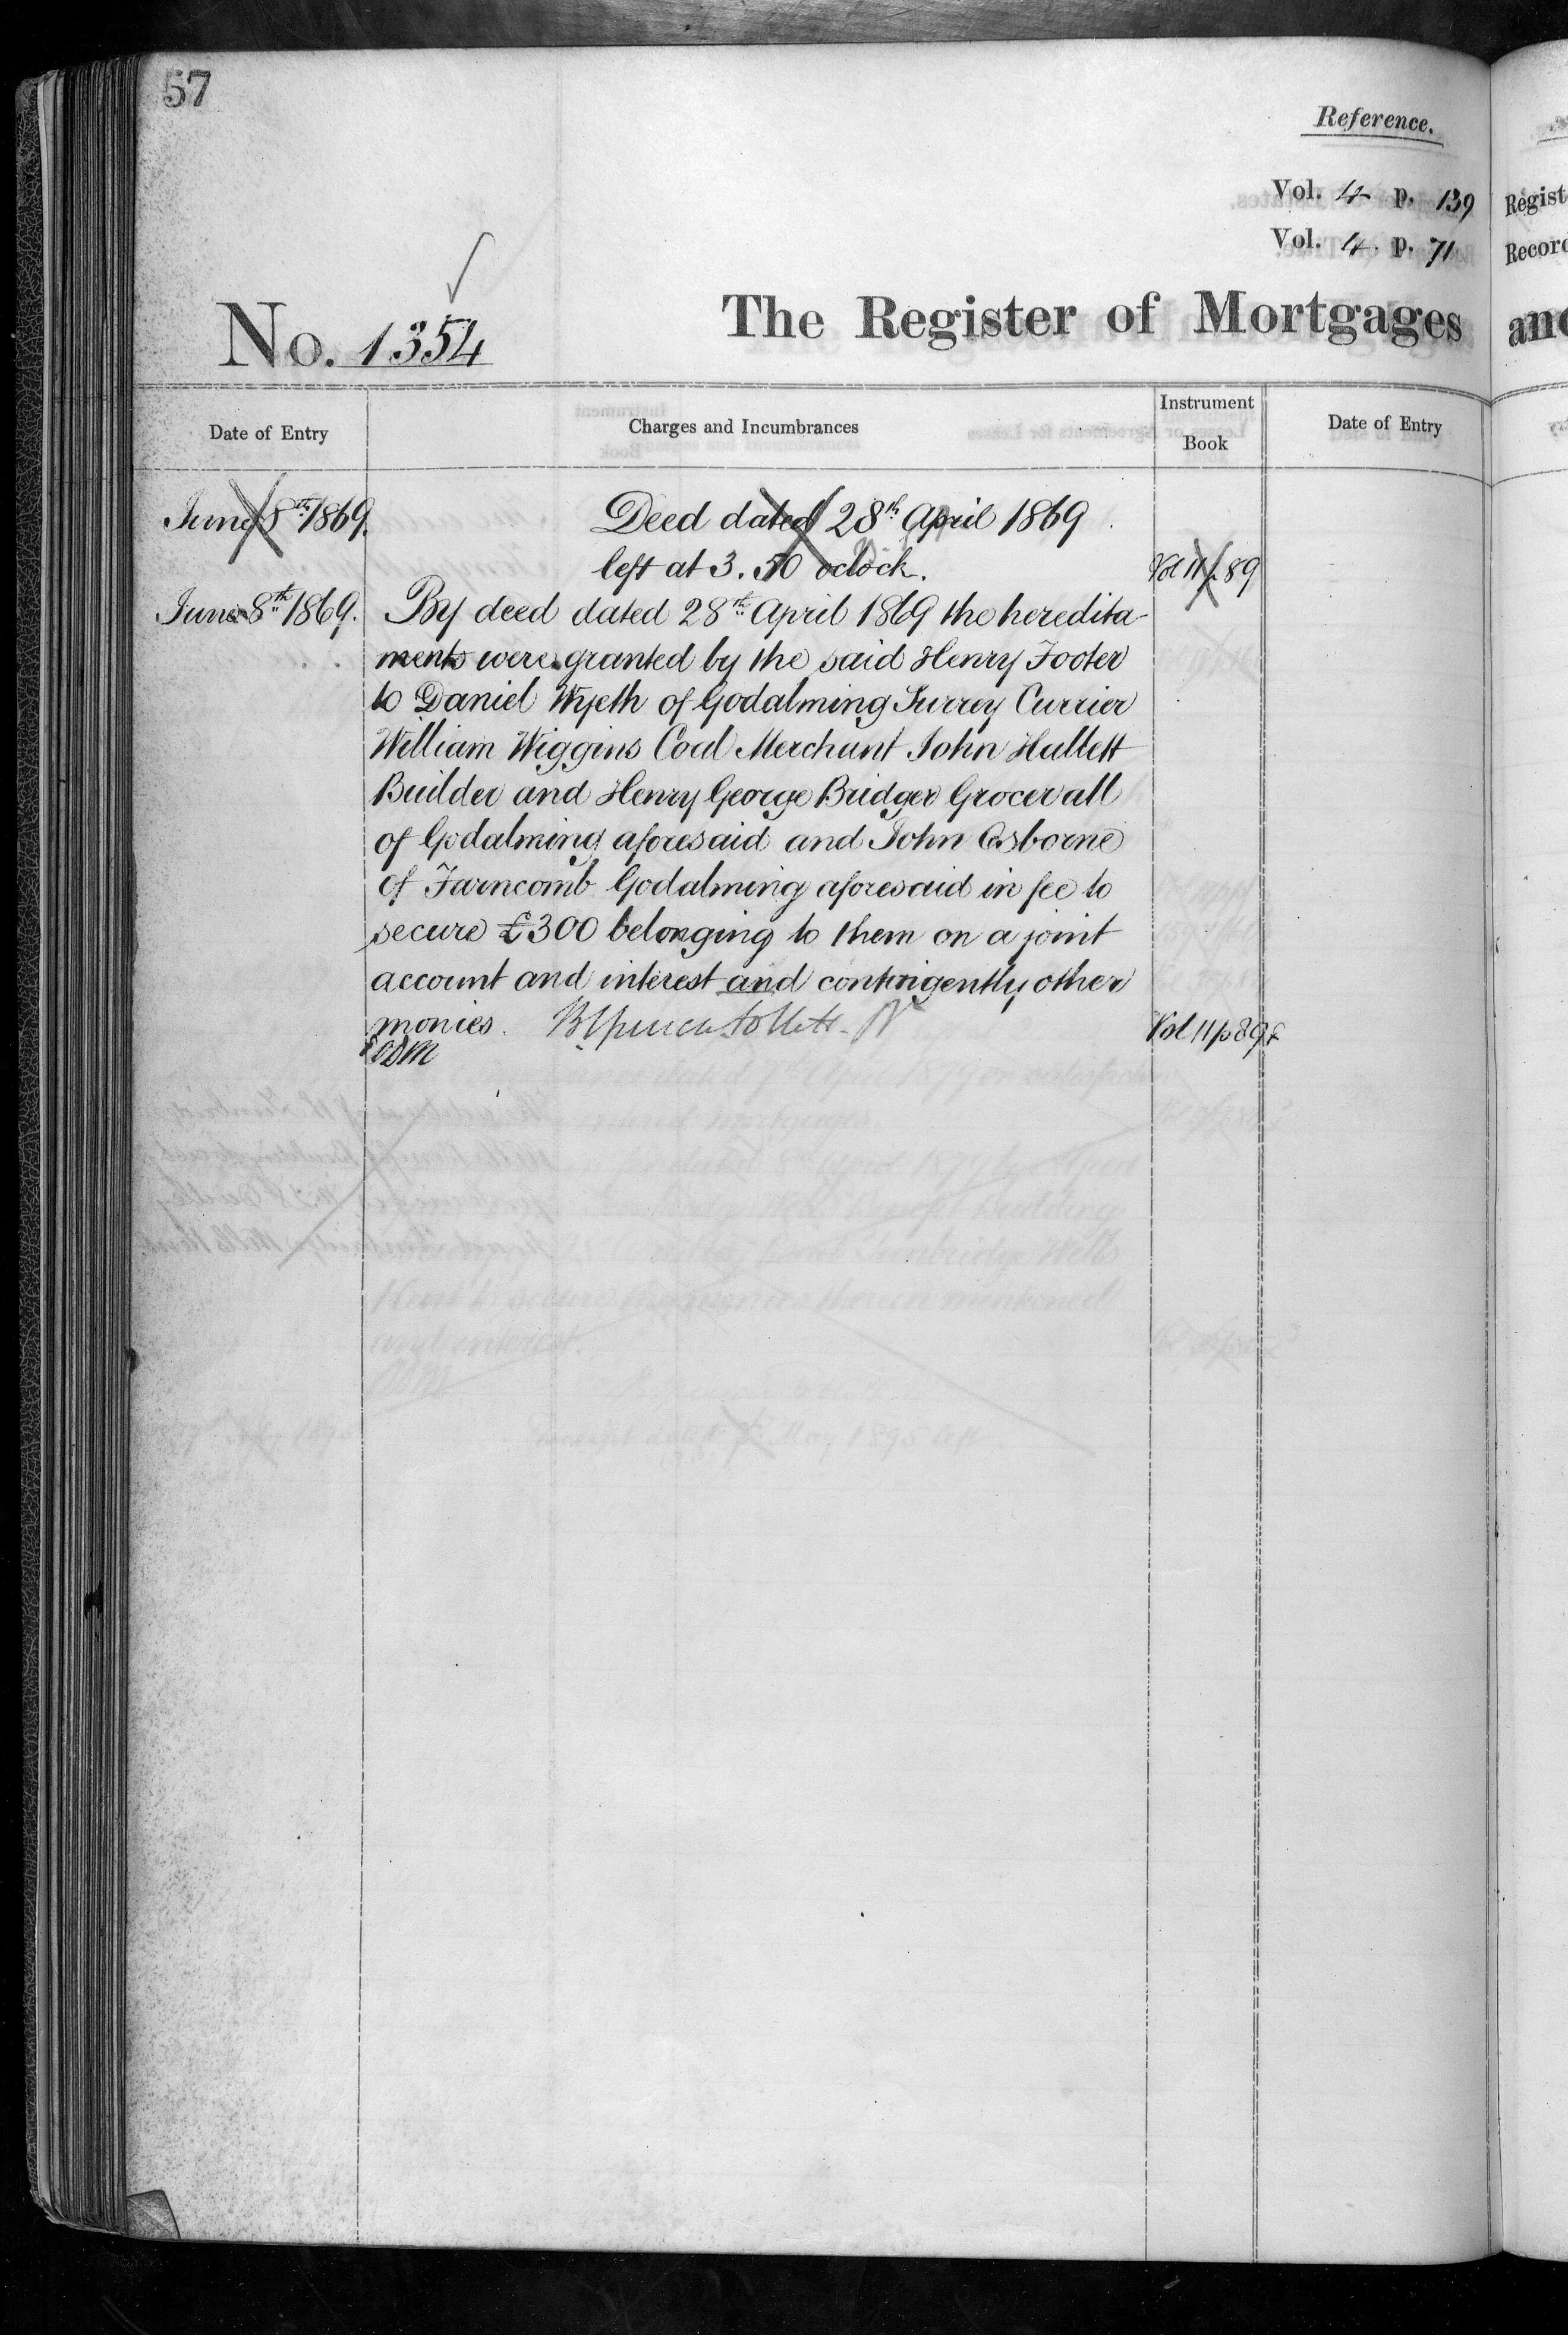 57
Reference.
Vol. 4 p. 139
Vol. 4. p. 71
Regist
Record
No. 1354
The Register of Mortgages
and
Date of Entry
Charges and Incumbrances
Instrument
Book
Date of Entry
June 8th 1869.
Deed dated 28th April 1869
left at 3.50 oclock.
Vol 11 p 89
June 8th 1869.
By deed dated 28th April 1869 the heredita-
ments were granted by the said Henry Footer
to Daniel Wyeth of Godalming Surrey Currier
William Wiggins Coal Merchant John Hullett
Builder and Henry George Bridger Grocer all
of Godalming aforesaid and John Osborne
of Farncomb Godalming aforesaid in fee to
secure £300 belonging to them on a joint
account and interest and contingently other
monies.
Vol 11 p 89